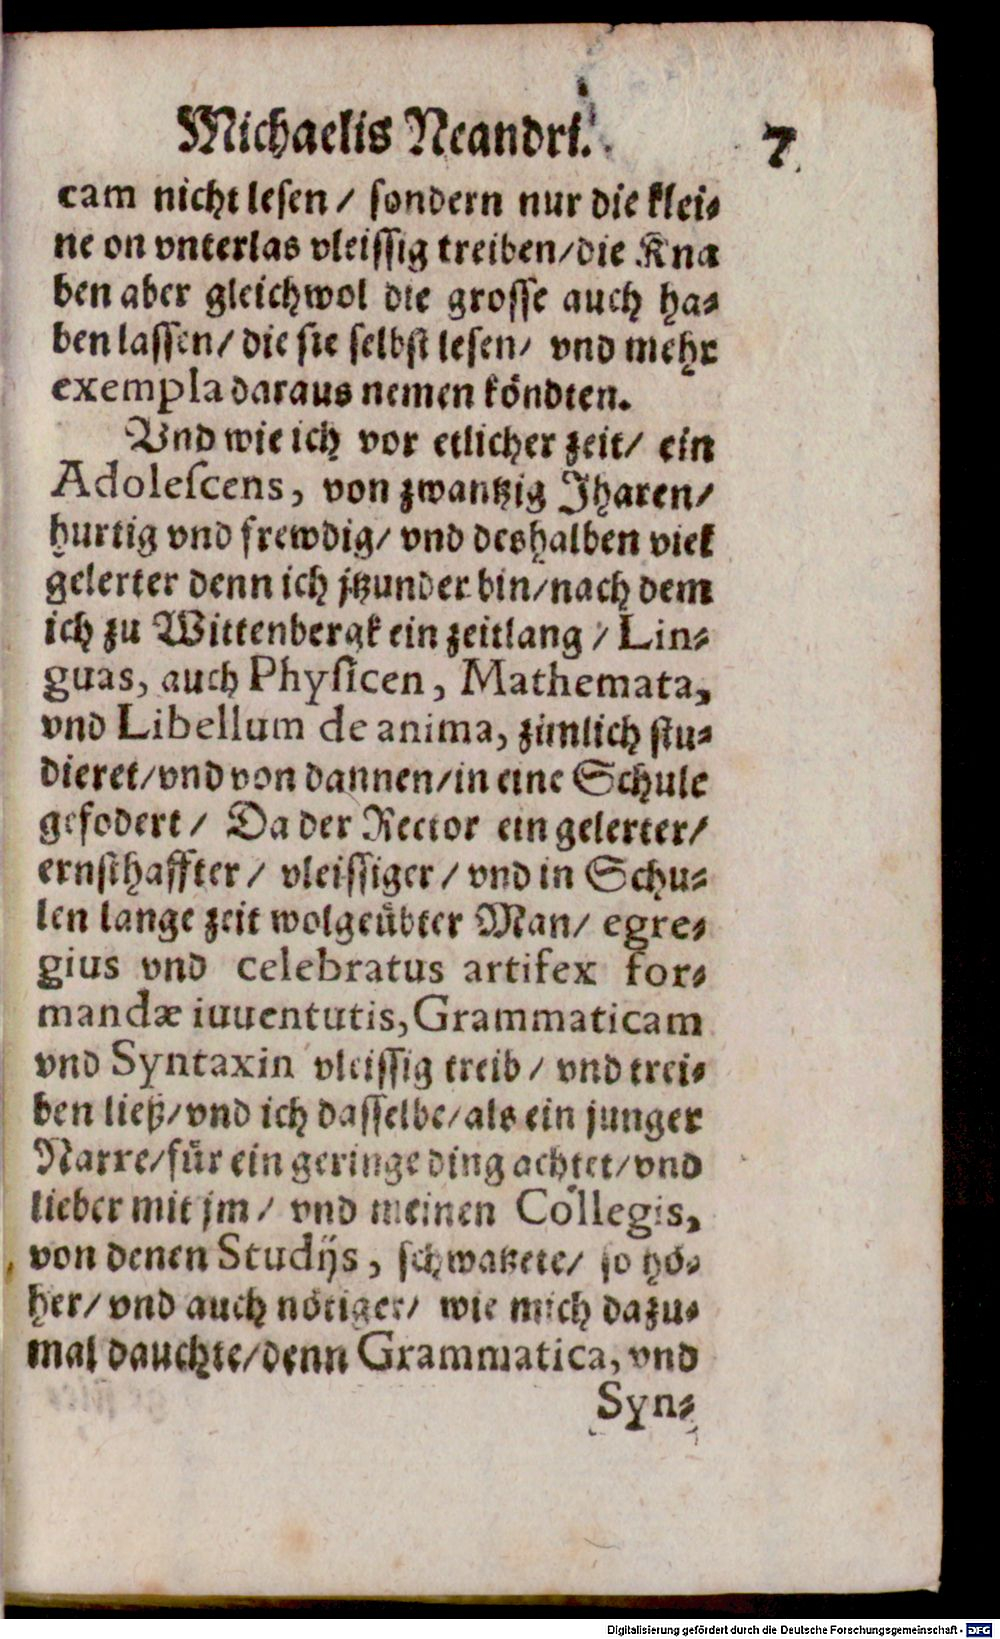 Michaelis Neandri.
7
cam nicht lesen / sondern nur die klei-
ne on vnterlas vleissig treiben/die Kna
ben aber gleichwol die grosse auch ha-
ben lassen/ die sie selbst lesen/ vnd mehr
exempla daraus nemen köndten.
Vnd wie ich vor etlicher zeit/ ein
Adolescens, von zwantzig Jharen/
hurtig vnd frewdig/ vnd deshalben viel
gelerter denn ich jtzunder bin/nach dem
ich zu Wittenbergk ein zeitlang / Lin-
guas, auch Physicen, Mathemata,
vnd Libellum de anima, zimlich stu-
dieret/vnd von dannen/in eine Schule
gefodert / Da der Rector ein gelerter/
ernsthaffter / vleissiger / vnd in Schu-
len lange zeit wolgeübter Man/ egre-
gius vnd celebratus artifex for-
mandæ iuuentutis, Grammaticam
vnd Syntaxin vleissig treib / vnd trei-
ben ließ/vnd ich dasselbe/als ein junger
Narre/für ein geringe ding achtet/vnd
lieber mit jm / vnd meinen Collegis,
von denen Studijs, schwatzete/ so hö-
her/ vnd auch nötiger/ wie mich dazu-
mal dauchte/denn Grammatica, vnd
Syn-
Digitalisierung gefördert durch die Deutsche Forschungsgemeinschaft - DFG